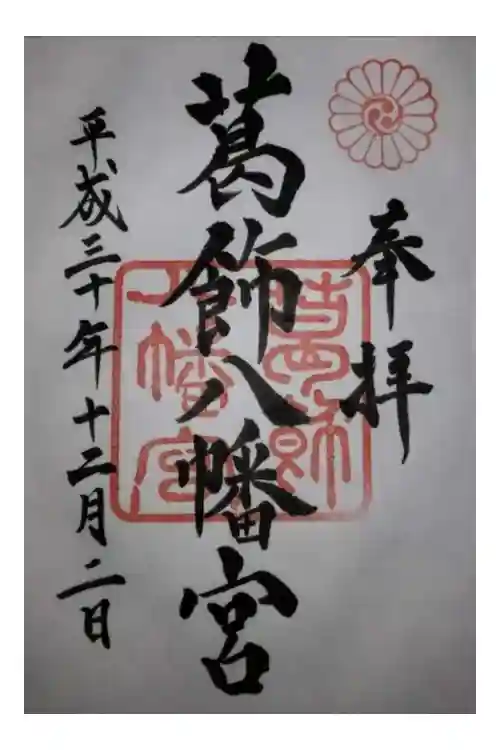 奉拝
葛飾八幡宮
葛飾八幡宮
平成三十年十二月二日